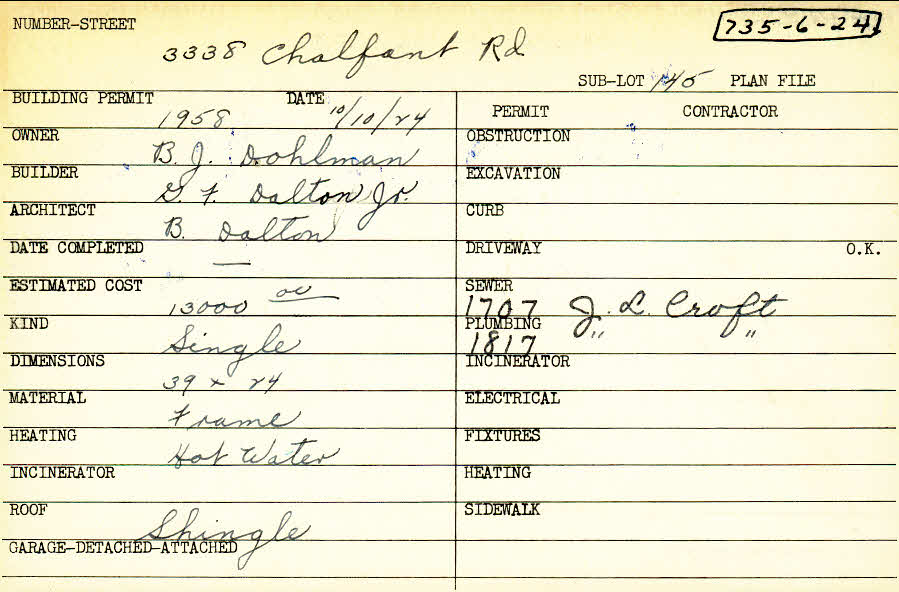 NUMBER-STREET
735-6-24
3338 Chalfant Rd
SUB-LOT 145 PLAN FILE
BUILDING PERMIT 1958 DATE 10/10/24
PERMIT CONTRACTOR
OWNER B. J. Dohlman
BUILDER G. F. Dalton Jr.
ARCHITECT B. Dalton
DATE COMPLETED —
ESTIMATED COST 13000 00
KIND Single
DIMENSIONS 39 x 24
MATERIAL Frame
HEATING Hot Water
INCINERATOR
ROOF Shingle
GARAGE-DETACHED-ATTACHED
OBSTRUCTION
EXCAVATION
CURB
DRIVEWAY O.K.
SEWER 1707 J. L. Croft
PLUMBING 1817 " "
INCINERATOR
ELECTRICAL
FIXTURES
HEATING
SIDEWALK